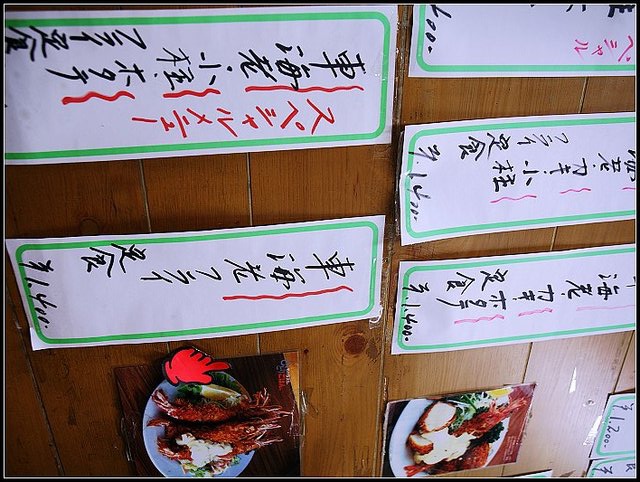 スペシャルメニュー
車海老 小柱 ホタテ
フライ定食
ペシャル
,400-
海老 カキ 小柱
フライ定食
¥1,400-
車海老 フライ
定食
¥1,400-
海老 カキ ホタテ
定食
¥1,400-
¥1,200-